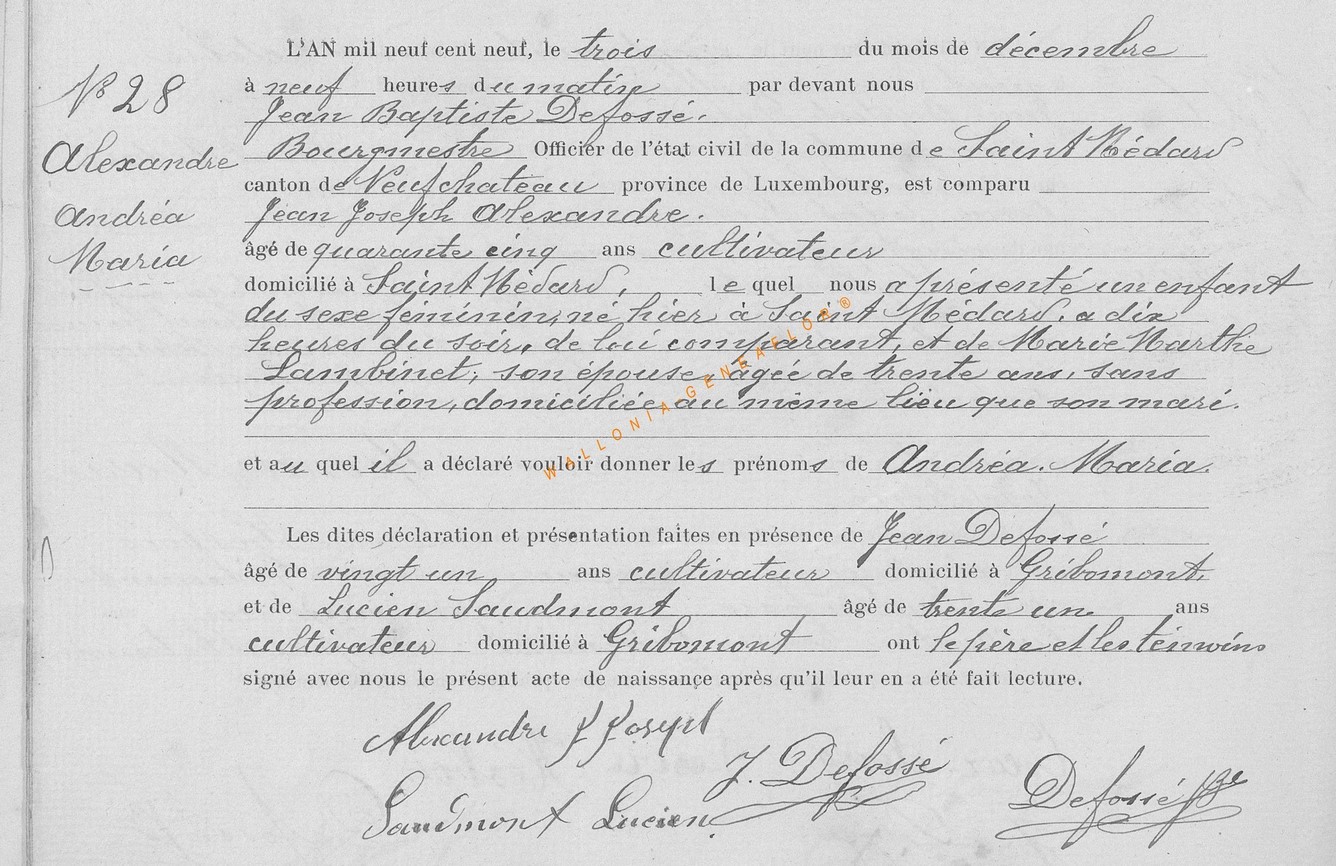 L'AN mil neuf cent neuf, le trois du mois de décembre
à neuf heures du matin par devant nous
Jean Baptiste Defossé.
Bourgmestre Officier de l'état civil de la commune de Saint Médard
canton de Neufchateau province de Luxembourg, est comparu
Jean Joseph Alexandre.
âgé de quarante cinq ans cultivateur
domicilié à Saint Médard, le quel nous a présenté un enfant
du sexe féminin, né hier à Saint Médard, a dix
heures du soir, de lui comparant, et de Marie Marthe
Lambinet, son épouse, âgée de trente ans, sans
profession, domiciliée au même lieu que son mari.
et au quel il a déclaré vouloir donner les prénoms de Andréa. Maria.
Les dites déclaration et présentation faites en présence de Jean Defossé
âgé de vingt un ans cultivateur domicilié à Gribomont,
et de Lucien Saudmont âgé de trente un ans
cultivateur domicilié à Gribomont ont le père et les témoins
signé avec nous le présent acte de naissance après qu'il leur en a été fait lecture.
Alexandre J Joseph
J. Defossé
Saudmont Lucien
Defossé JBte
N° 28
Alexandre
Andréa
Maria
WALLONIA-GENEAFLOR®